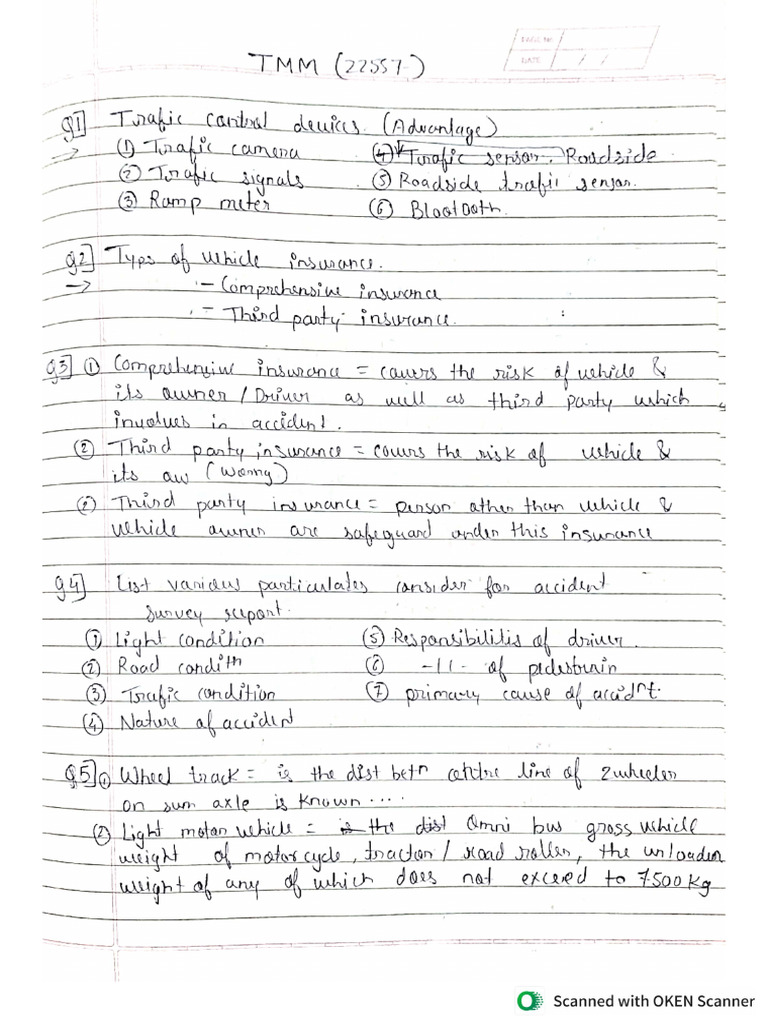 PAGE No.
DATE / /
TMM (22557)
Q1] Trafic control devices. (Advantage)
→ ① Trafic camera ④ Trafic sensor. Roadside
② Trafic signals ⑤ Roadside trafic sensor.
③ Ramp meter ⑥ Blootooth.
Q2] Typs of vehicle insurance.
→ - Comprehensive insurance
- Third party insurance.
Q3] ① Comprehensive insurance = covers the risk of vehicle &
its owner / Driver as well as third party which
involves in accident.
② Third party insurance = covers the risk of vehicle &
its ow (worng)
② Third party insurance = person other than vehicle &
vehicle owner are safeguard under this insurance
Q4] List various particulates consider for accident
survey report.
① Light condition ⑤ Responsibilitis of driver.
② Road condith ⑥ -11- of pedestrain
③ Trafic condition ⑦ primary cause of accidnt.
④ Nature of accident
Q5] ① Wheel track = is the dist betn centre line of 2 wheeler
on sum axle is known ....
② Light motor vehicle = is the dist Omni bus gross vehicle
weight of motor cycle, tractor / road roller, the unloaden
weight of any of which does not exceed to 7500 kg
Scanned with OKEN Scanner